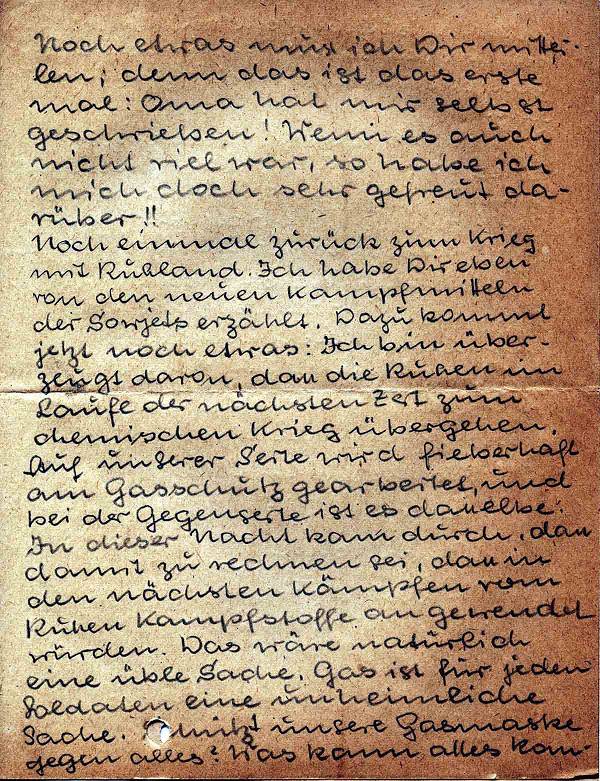 Noch etwas muss ich Dir mittei-
len; denn das ist das erste
mal: Oma hat mir selbst
geschrieben! Wenn es auch
nicht viel war, so habe ich
mich doch sehr gefreut da-
rüber!!
Noch einmal zurück zum Krieg
mit Rußland. Ich habe Dir eben
von den neuen Kampfmitteln
der Sowjets erzählt. Dazu kommt
jetzt noch etwas: Ich bin über-
zeugt davon, daß die Rußen im
Laufe der nächsten Zeit zum
chemischen Krieg übergehen.
Auf unserer Seite wird fieberhaft
am Gasschutz gearbeitet, und
bei der Gegenseite ist es dasselbe.
In dieser Nacht kam durch, daß
damit zu rechnen sei, daß in
den nächsten Kämpfen vom
Rußen Kampfstoffe angewendet
würden. Das wäre natürlich
eine üble Sache. Gas ist für jeden
Soldaten eine unheimliche
Sache. nützt unsere Gasmaske
gegen alles? Was kann alles kom-